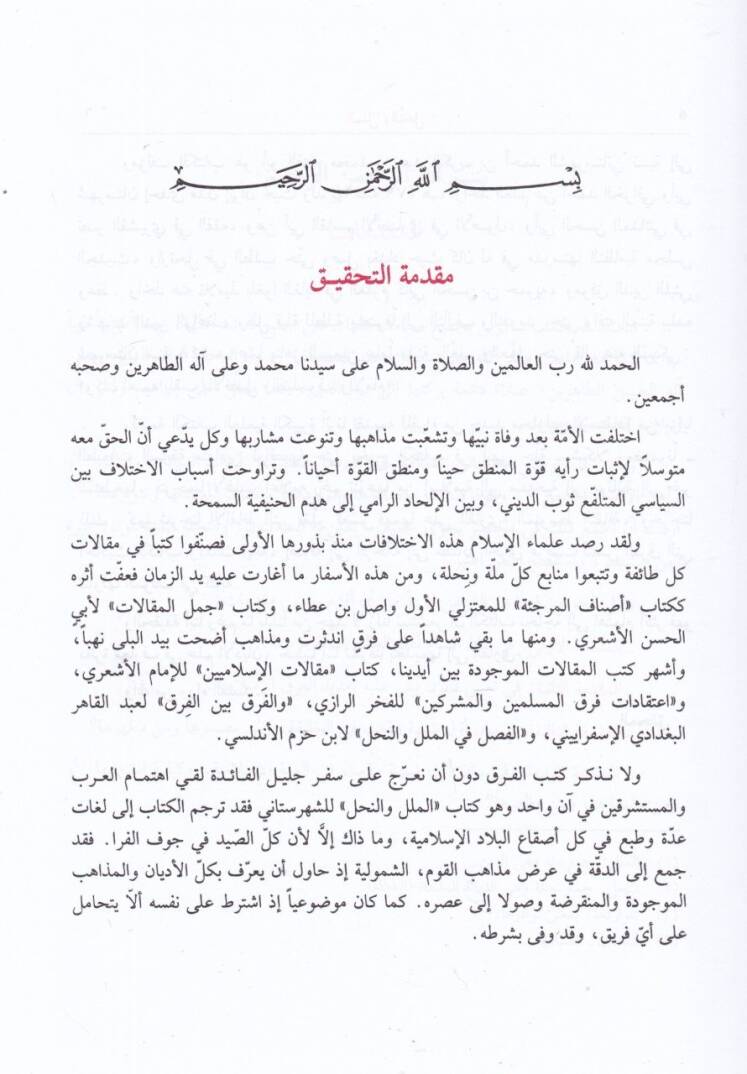 بِسْمِ اللَّهِ الرَّحْمَٰنِ الرَّحِيمِ
مقدمة التحقيق
الحمد لله رب العالمين والصلاة والسلام على سيدنا محمد وعلى آله الطاهرين وصحبه
أجمعين.
اختلفت الأمّة بعد وفاة نبيّها وتشعّبت مذاهبها وتنوعت مشاربها وكل يدعي أنّ الحقّ معه
متوسلاً لإثبات رأيه قوّة المنطق حيناً ومنطق القوّة أحياناً. وتراوحت أسباب الاختلاف بين
السياسي المتلفّع ثوب الديني، وبين الإلحاد الرامي إلى هدم الحنيفية السمحة.
ولقد رصد علماء الإسلام هذه الاختلافات منذ بذورها الأولى فصنّفوا كتباً في مقالات
كل طائفة وتتبعوا منابع كلّ ملّة ونِحلة، ومن هذه الأسفار ما أغارت عليه يد الزمان فعفّت أثره
ككتاب «أصناف المرجئة» للمعتزلي الأول واصل بن عطاء، وكتاب «جمل المقالات» لأبي
الحسن الأشعري. ومنها ما بقي شاهداً على فرقٍ اندثرت ومذاهب أضحت بيد البلى نهباً،
وأشهر كتب المقالات الموجودة بين أيدينا، كتاب «مقالات الإسلاميين» للإمام الأشعري،
و«اعتقادات فرق المسلمين والمشركين» للفخر الرازي، «والفَرق بين الفِرق» لعبد القاهر
البغدادي الإسفراييني، و«الفصل في الملل والنحل» لابن حزم الأندلسي.
ولا نذكر كتب الفرق دون أن نعرّج على سفر جليل الفائدة لقي اهتمام العرب
والمستشرقين في آن واحد وهو كتاب «الملل والنحل» للشهرستاني فقد ترجم الكتاب إلى لغات
عدّة وطبع في كل أصقاع البلاد الإسلامية، وما ذاك إلاَّ لأن كلّ الصّيد في جوف الفرا. فقد
جمع إلى الدقّة في عرض مذاهب القوم، الشمولية إذ حاول أن يعرّف بكلّ الأديان والمذاهب
الموجودة والمنقرضة وصولا إلى عصره. كما كان موضوعياً إذ اشترط على نفسه ألاّ يتحامل
على أيّ فريق، وقد وفى بشرطه.